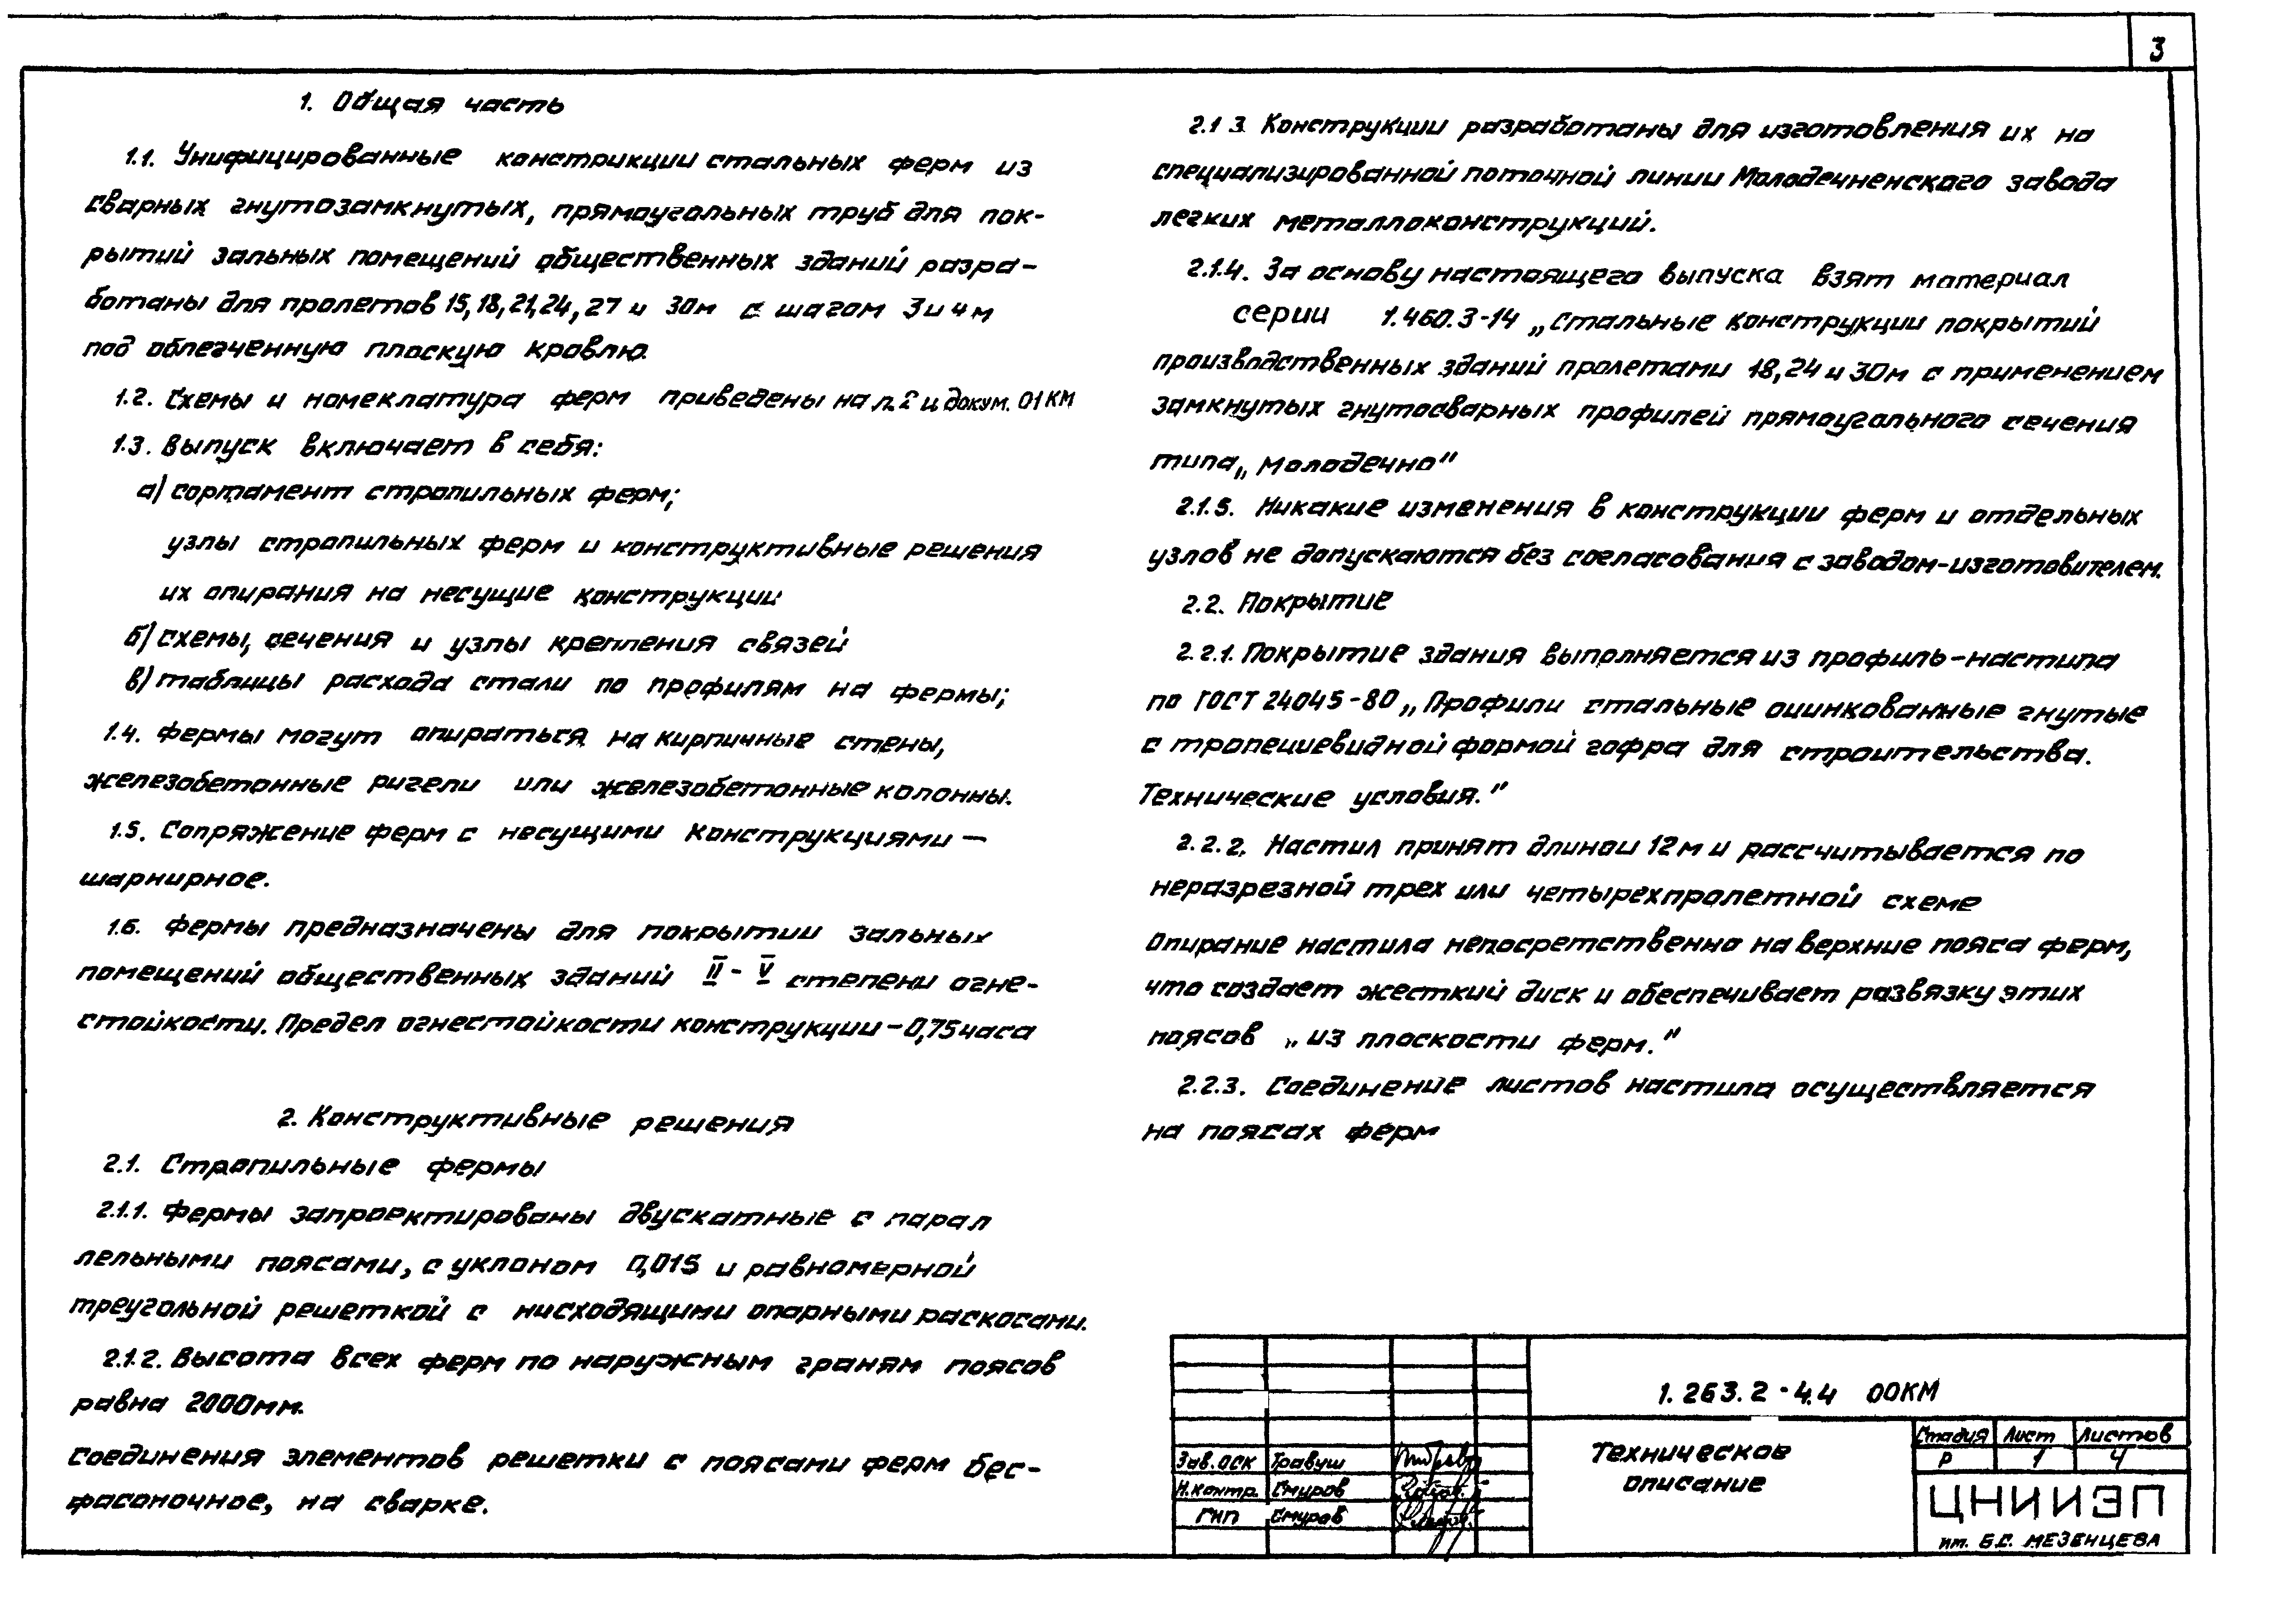 3
1. Общая часть
1.1. Унифицированные констрикции стальных ферм из
сварных гнутозамкнутых, прямоугольных труб для пок-
рытий зальных помещений общественных зданий разра-
ботаны для пролетов 15, 18, 21, 24, 27 и 30м с шагом 3 и 4 м
под облегченную плоскую кровлю.
1.2. Схемы и номеклатура ферм приведены на л.2 и докум. 01КМ
1.3. Выпуск включает в себя:
а) сортамент стропильных ферм;
узлы стропильных ферм и конструктивные решения
их опирания на несущие конструкции
б) схемы, сечения и узлы крепления связей
в) таблицы расхода стали по профилям на фермы;
1.4. Фермы могут опираться на кирпичные стены,
железобетонные ригели или железобетонные колонны.
1.5. Сопряжение ферм с несущими конструкциями —
шарнирное.
1.6. Фермы предназначены для покрытии зальных
помещений общественных зданий II - V степени огне-
стойкости. Предел огнестойкости конструкции - 0,75 часа
2. Конструктивные решения
2.1. Стропильные фермы
2.1.1. Фермы запроектированы двускатные с парал
лельными поясами, с уклоном 0,015 и равномерной
треугольной решеткой с нисходящими опорными раскосами.
2.1.2. Высота всех ферм по наружным граням поясов
равна 2000мм.
Соединения элементов решетки с поясами ферм бес-
фасоночное, на сварке.
2.1 3. Конструкции разработаны для изготовления их на
специализированной поточной линии Молодечненского завода
легких металлоконструкций.
2.1.4. За основу настоящего выпуска взят материал
серии 1.460.3-14 „Стальные конструкции покрытий
производственных зданий пролетами 18, 24 и 30м с применением
замкнутых гнутосварных профилей прямоугольного сечения
типа „Молодечно"
2.1.5. Никакие изменения в конструкции ферм и отдельных
узлов не допускаются без согласования с заводом-изготовителем.
2.2. Покрытие
2.2.1. Покрытие здания выполняется из профиль-настила
по ГОСТ 24045-80 „Профили стальные оцинкованные гнутые
с трапециевидной формой гофра для строительства.
Технические условия."
2.2.2. Настил принят длиной 12м и рассчитывается по
неразрезной трех или четырехпролетной схеме
Опирание настила непосретственно на верхние пояса ферм,
что создает жесткий диск и обеспечивает развязку этих
поясов „из плоскости ферм."
2.2.3. Соединение листов настила осуществляется
на поясах ферм
1.263.2-4.4 00КМ
Зав. ОСК Травуш
Н.контр. Смуров
ГИП Смуров
Техническое
описание
Стадия Лист Листов
Р 1 4
ЦНИИЭП
им. Б.С. МЕЗЕНЦЕВА